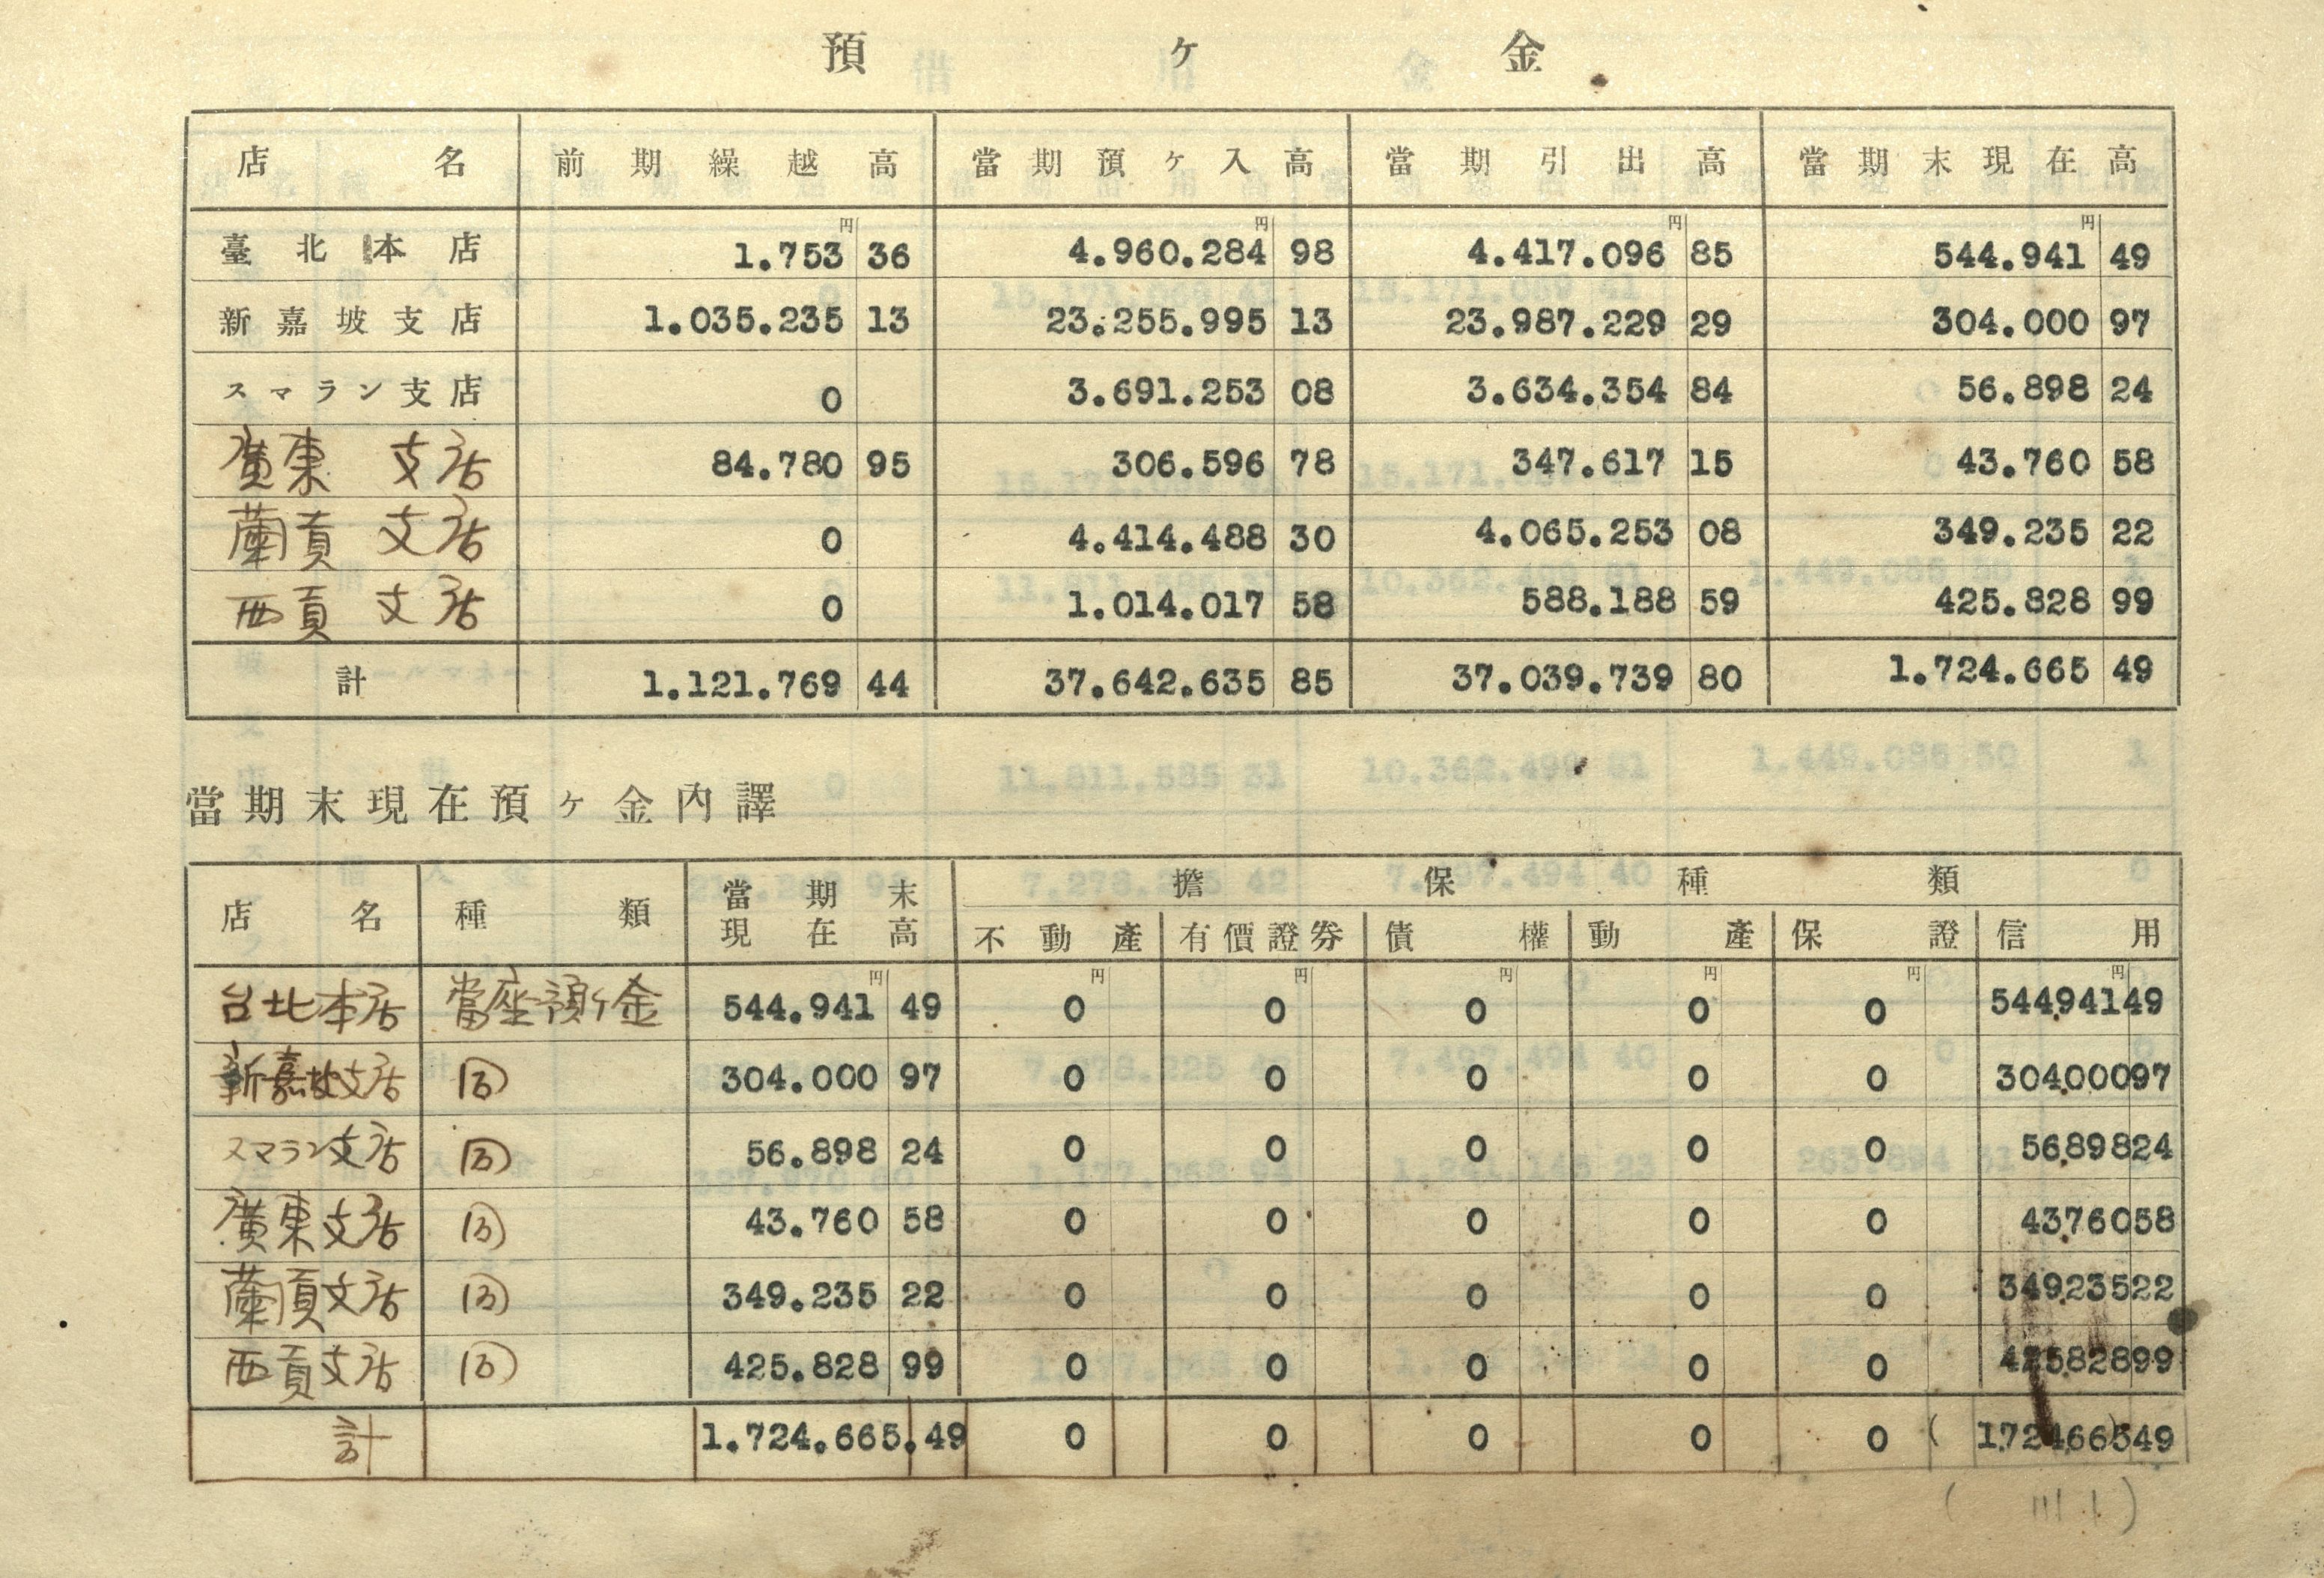 預ヶ金
店名 前期繰越高 當期預ヶ入高 當期引出高 當期末現在高
円 円 円 円
臺北本店 1.753 36 4.960.284 98 4.417.096 85 544.941 49
新嘉坡支店 1.035.235 13 23.255.995 13 23.987.229 29 304.000 97
スマラン支店 0 3.691.253 08 3.634.354 84 56.898 24
廣東支店 84.780 95 306.596 78 347.617 15 43.760 58
蘭貢支店 0 4.414.488 30 4.065.253 08 349.235 22
西貢支店 0 1.014.017 58 588.188 59 425.828 99
計 1.121.769 44 37.642.635 85 37.039.739 80 1.724.665 49
當期末現在預ヶ金內譯
店名 種類 當期末現在高 擔保種類
不動產 有價證券 債權 動產 保證 信用
円 円 円 円 円 円 円
台北本店 當座預ヶ金 544.941 49 0 0 0 0 0 544.941 49
新嘉坡支店 同 304.000 97 0 0 0 0 0 304.000 97
スマラン支店 同 56.898 24 0 0 0 0 0 56.898 24
廣東支店 同 43.760 58 0 0 0 0 0 43.760 58
蘭貢支店 同 349.235 22 0 0 0 0 0 349.235 22
西貢支店 同 425.828 99 0 0 0 0 0 425.828 99
計 1.724.665.49 0 0 0 0 0 (1724665)49